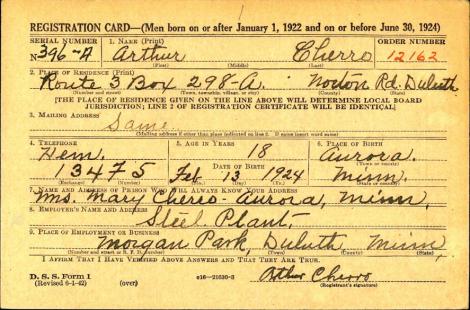 REGISTRATION CARD—(Men born on or after January 1, 1922 and on or before June 30, 1924)
SERIAL NUMBER 1. NAME (Print) ORDER NUMBER
N 396-A Arthur Cherro 12162
(First) (Middle) (Last)
2. PLACE OF RESIDENCE (Print)
Route 3 Box 298-A. Norton Rd. Duluth
(Number and street) (Town, township, village, or city) (County) (State)
[THE PLACE OF RESIDENCE GIVEN ON THE LINE ABOVE WILL DETERMINE LOCAL BOARD
JURISDICTION; LINE 2 OF REGISTRATION CERTIFICATE WILL BE IDENTICAL]
3. MAILING ADDRESS
Same
(Mailing address if other than place indicated on line 2. If same insert word same)
4. TELEPHONE 5. AGE IN YEARS 6. PLACE OF BIRTH
Hem. 18 Aurora.
DATE OF BIRTH (Town or county)
13475 Feb 13 1924 Minn.
(Exchange) (Number) (Mo.) (Day) (Yr.) (State or country)
7. NAME AND ADDRESS OF PERSON WHO WILL ALWAYS KNOW YOUR ADDRESS
Mrs. Mary Cherro - Aurora, Minn,
8. EMPLOYER'S NAME AND ADDRESS
Steel Plant,
9. PLACE OF EMPLOYMENT OR BUSINESS
Morgan Park, Duluth, Minn,
(Number and street or R. F. D. number) (Town) (County) (State)
I AFFIRM THAT I HAVE VERIFIED ABOVE ANSWERS AND THAT THEY ARE TRUE.
D. S. S. Form 1 e16—21630-2 Arthur Cherro
(Revised 6-1-42) (over) (Registrant's signature)